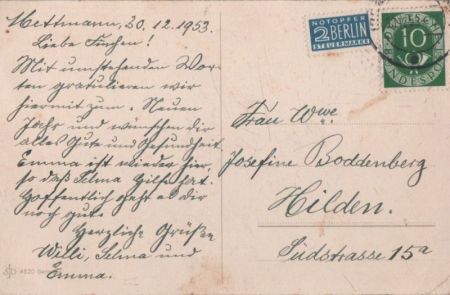 Mettmann, 20.12.1953.
Liebe Finchen!
Mit umstehenden Wor-
ten gratulieren wir
hiermit zum. Neuen
Jahr und wünschen dir
alles Gute und Gesundheit
Emma ist wieder hier,
so daß Selma Hilfe hat.
Hoffentlich geht es dir
noch gut.
Herzliche Grüße
Willi, Selma und
Emma.
4820
NOTOPFER
2 BERLIN
STEUERMARKE
10
DEUTSCHE BUNDESPOST
Frau Wwe.
Josefine Boddenberg
Hilden.
Südstrasse 15a